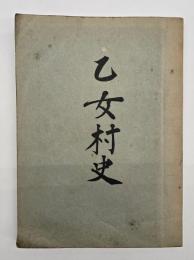 乙女村史